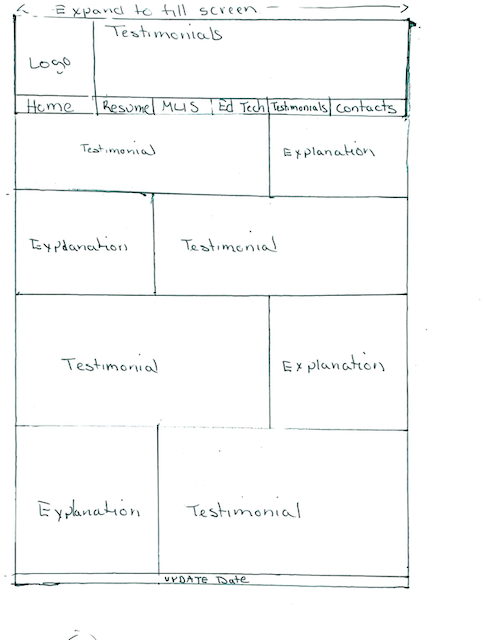 Expand to fill screen
Testimonials
Logo
Home Resume MLIS Ed Tech Testimonials Contacts
Testimonial Explanation
Explanation Testimonial
Testimonial Explanation
Explanation Testimonial
UPDATE Date